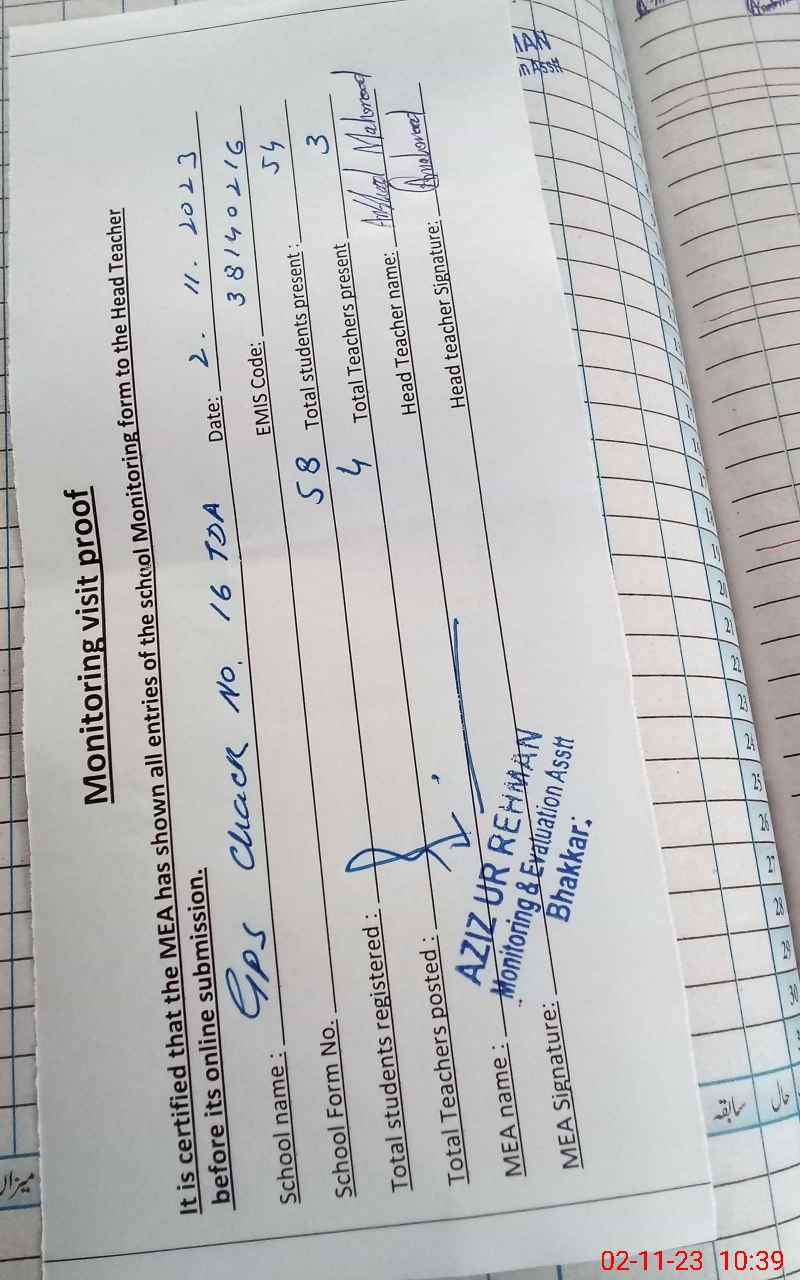 Monitoring visit proof
It is certified that the MEA has shown all entries of the school Monitoring form to the Head Teacher
before its online submission.
Date: 2. 11. 2023
School name : GPS Chack No. 16 TDA EMIS Code: 38140216
School Form No. 58 Total students present : 54
Total students registered : 4 Total Teachers present 3
Total Teachers posted : Head Teacher name: Mahmood
MEA name : Head teacher Signature:
MEA Signature:
AZIZ UR REHMAN
Monitoring & Evaluation Asstt
Bhakkar.
میزان
سابقہ
حال
18
19
20
21
22
23
24
25
26
27
28
29
30
02-11-23 10:39